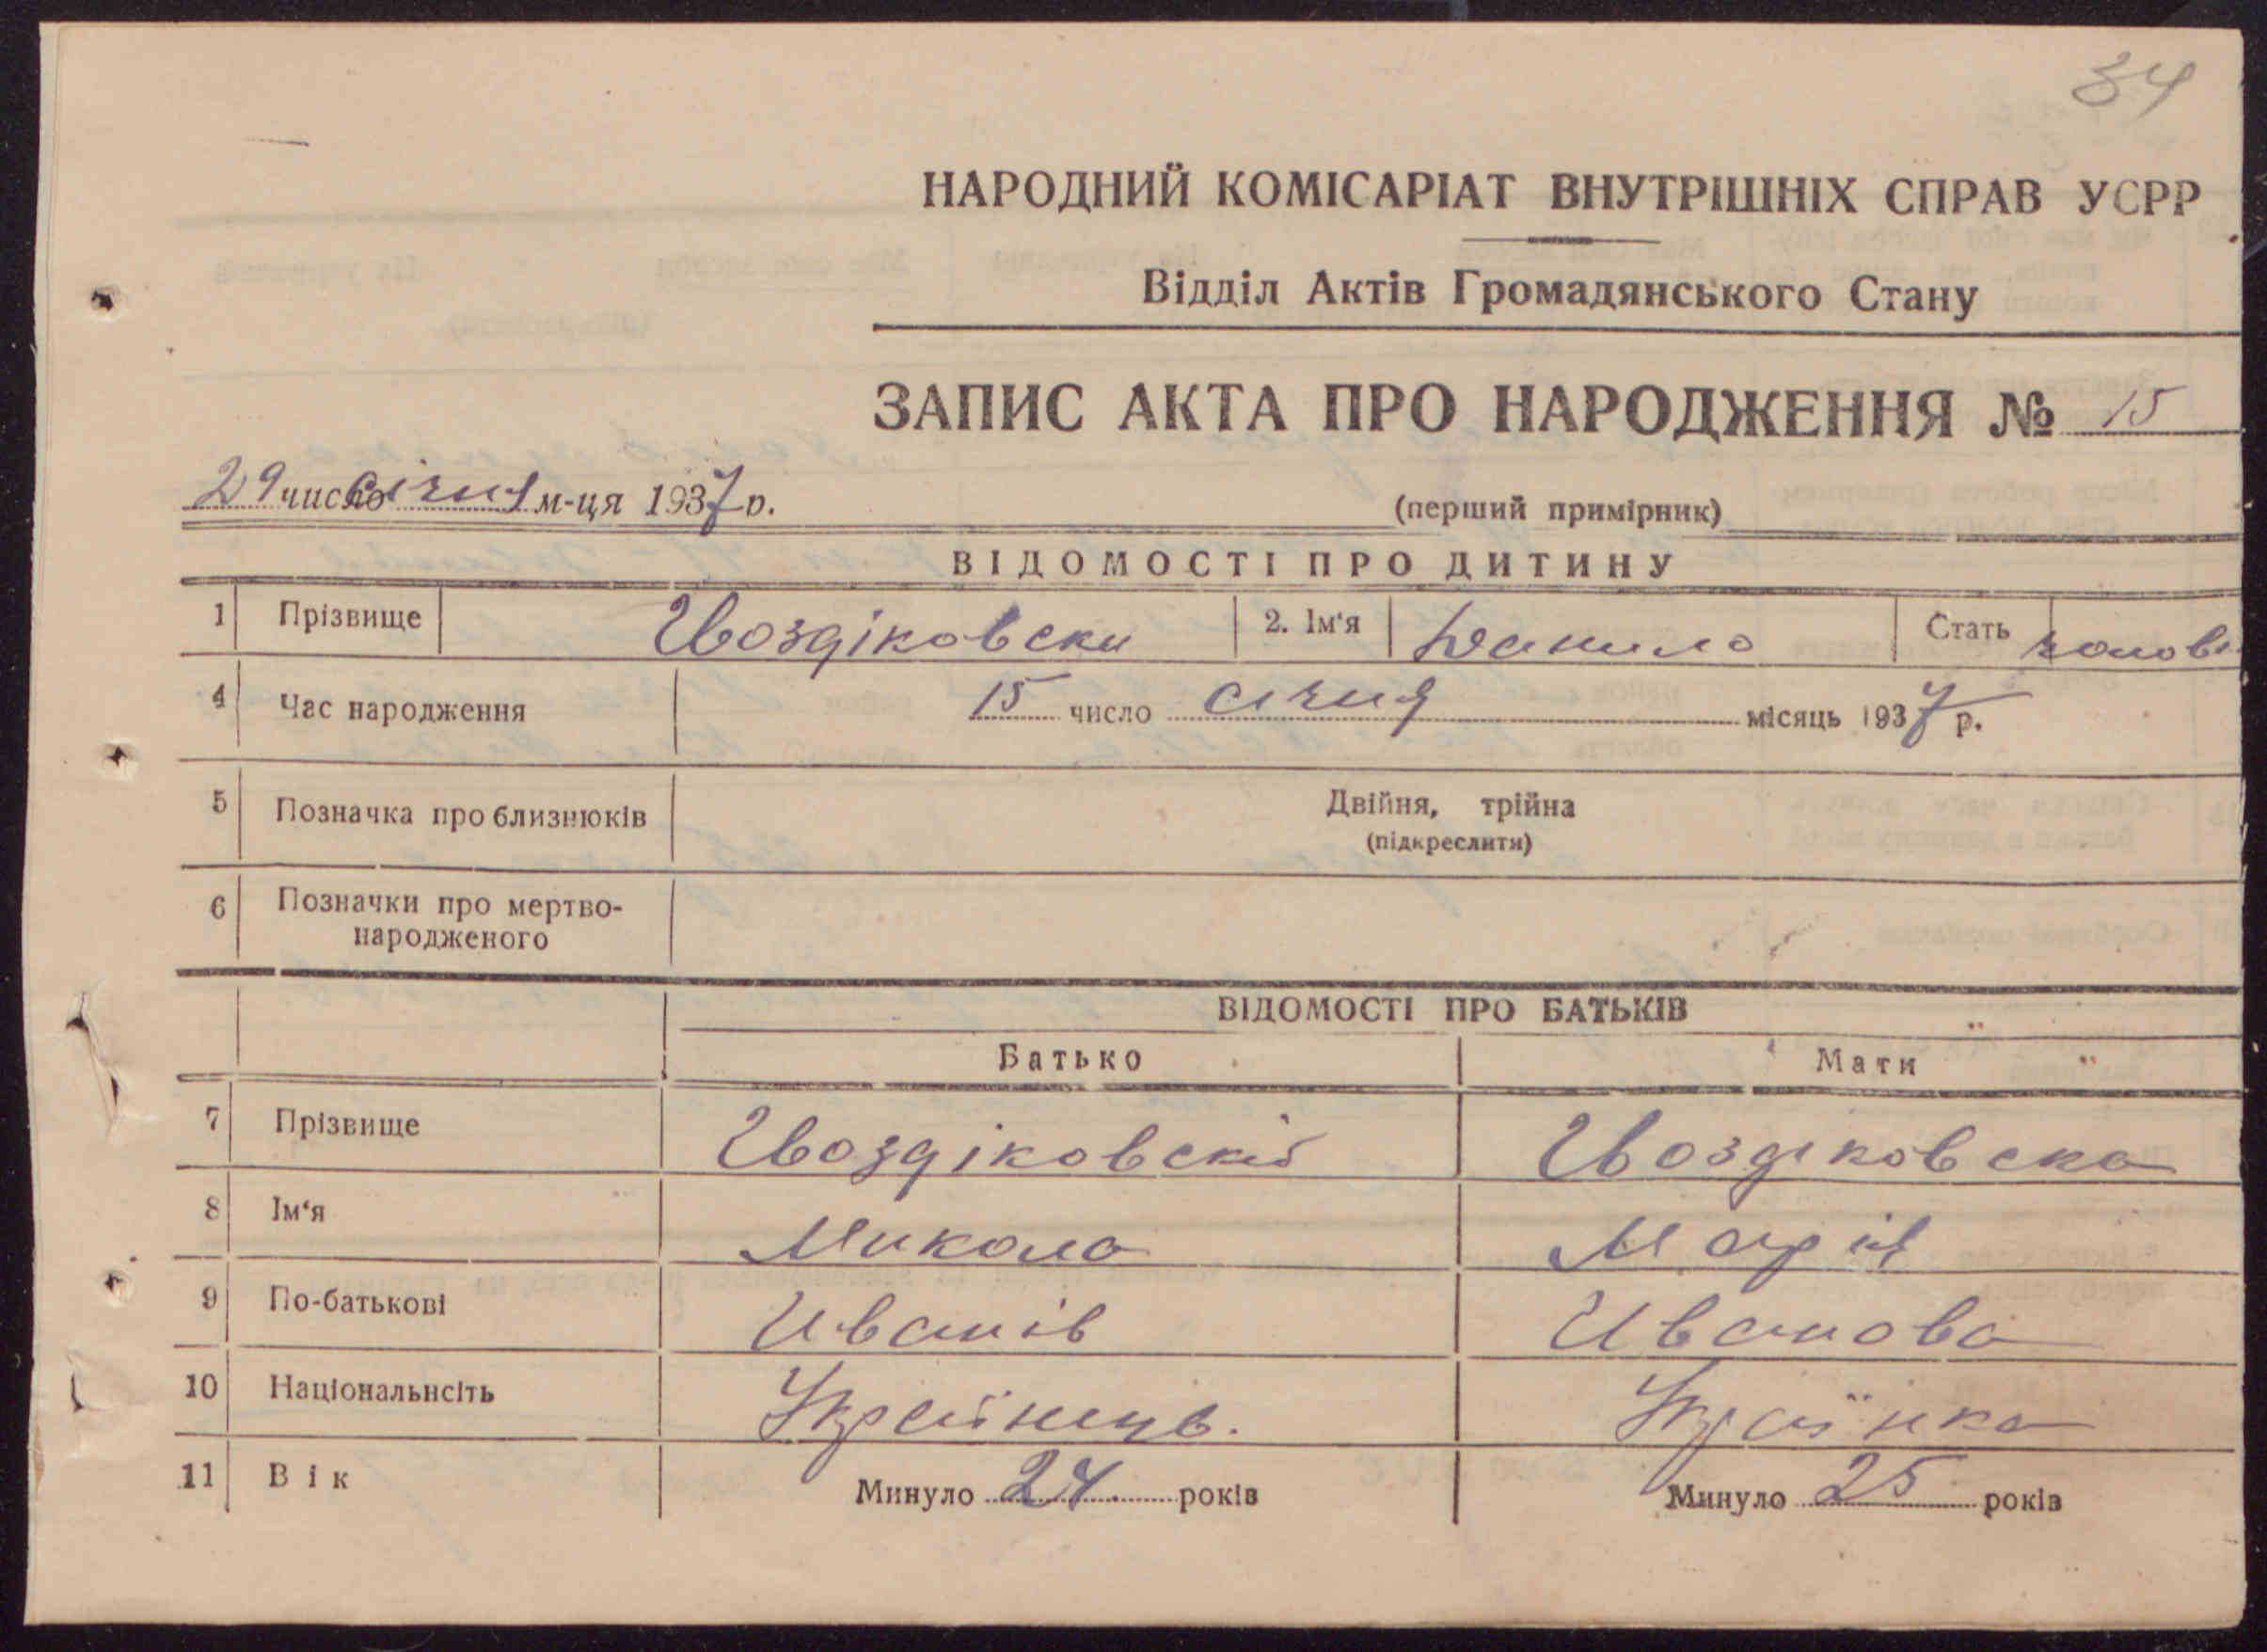 34
НАРОДНИЙ КОМІСАРІАТ ВНУТРІШНІХ СПРАВ УСРР
Відділ Актів Громадянського Стану
ЗАПИС АКТА ПРО НАРОДЖЕННЯ № 15
29 число січня м-ця 1937 р.
(перший примірник)
ВІДОМОСТІ ПРО ДИТИНУ
1 Прізвище Гвоздіковски 2. Ім'я Данило Стать чолові
4 Час народження 15 число січня місяць 1937 р.
5 Позначка про близнюків Двійня, трійна
(підкреслити)
6 Позначки про мертво-
народженого
ВІДОМОСТІ ПРО БАТЬКІВ
Батько Мати
7 Прізвище Гвоздіковскій Гвоздіковска
8 Ім'я Микола Марія
9 По-батькові Иванів Иванова
10 Національнсіть Українець. Українка
11 Вік Минуло 24 років Минуло 25 років